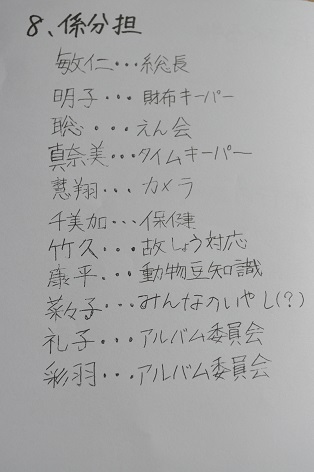 8、係分担
敏仁・・・総長
明子・・・財布キーパー
聡・・・えん会
真奈美・・・タイムキーパー
慧翔・・・カメラ
千美加・・・保健
竹久・・・故しょう対応
康平・・・動物豆知識
菜々子・・・みんなのいやし(?)
礼子・・・アルバム委員会
彩羽・・・アルバム委員会